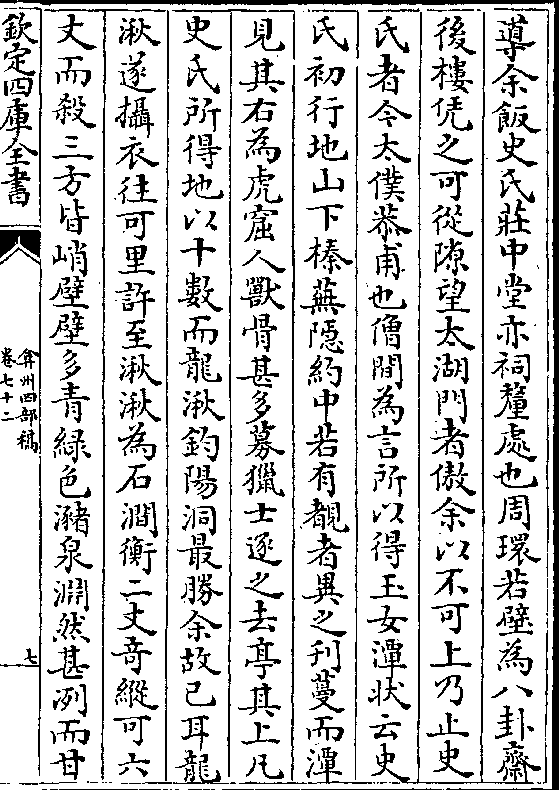 導余飯史氏莊中堂亦祠釐處也周環若壁為八卦齋
後樓凭之可從隙望太湖門者傲余以不可上乃止史
氏者今太僕恭甫也僧間為言所以得玉女潭狀云史
氏初行地山下榛蕪隱約中若有覩者異之刋蔓而潭
見其右為虎窟人獸骨甚多募獵士逐之去亭其上凡
史氏所得地以十數而龍湫釣陽洞最勝余故已耳龍
湫遂攝衣往可里許至湫湫為石澗衡二丈竒縱可六
丈而殺三方皆峭壁壁多青緑色瀦泉淵然甚冽而甘
欽定四庫全書
弇州四部稿
卷七十二
七